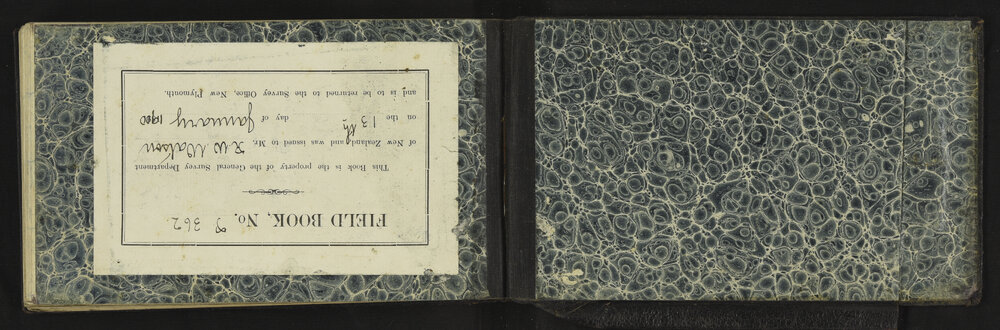 FIELD BOOK, No. 362.
This Book is the property of the General Survey Department
of New Zealand, and was issued to Mr. H W Watson
on the 13th day of January 1900
and is to be returned to the Survey Office, New Plymouth.